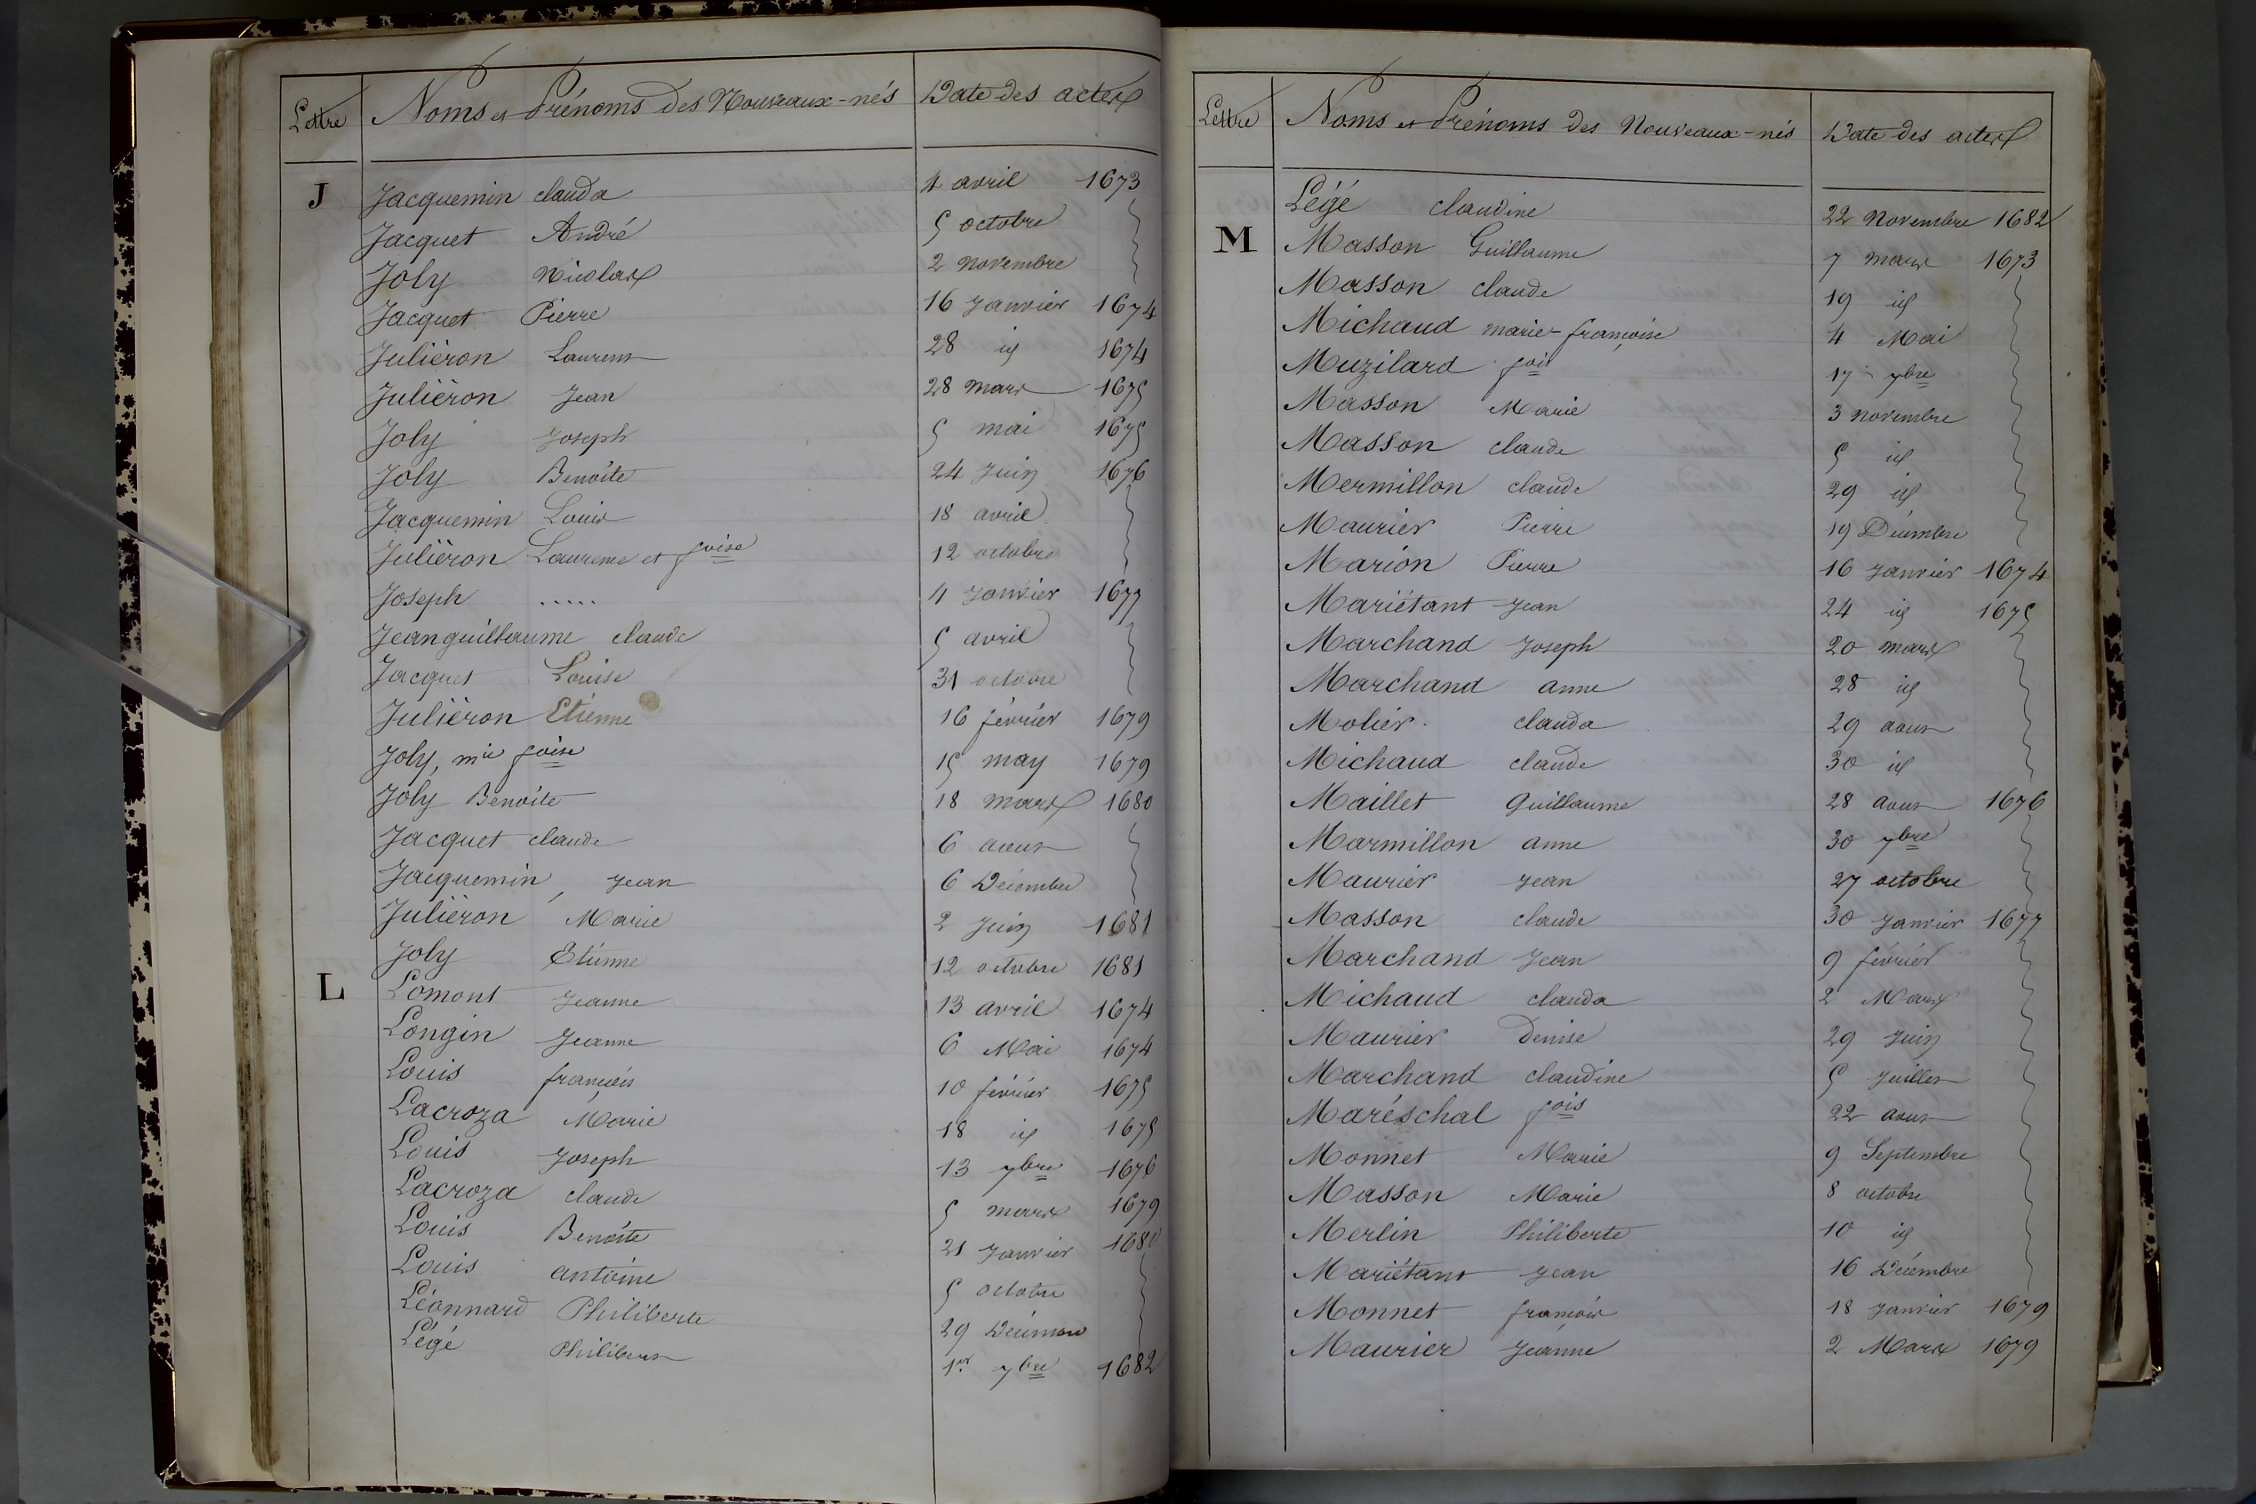 Lettre Noms et Prénoms des Nouveaux-nés Date des actes
J Jacquemin clauda 4 avril 1673
Jacquet André 5 octobre
Joly Nicolas 2 novembre
Jacquet Pierre 16 Janvier 1674
Juliéron Laurent 28 id 1674
Juliéron Jean 28 mars 1675
Joly Joseph 5 mai 1675
Joly Benoîte 24 Juin 1676
Jacquemin Louis 18 avril
Juliéron Laurence et foise 12 octobre
Joseph ..... 4 Janvier 1677
Jeanguillaume claude 5 avril
Jacquet Louise 31 octobre
Juliéron Etienne 16 février 1679
Joly, mie foise 15 may 1679
Joly Benoîte 18 mars 1680
Jacquet claude 6 aout
Jacquemin, Jean 6 Décembre
Juliéron Marie 2 Juin 1681
Joly Etienne 12 octobre 1681
L Lomont Jeanne 13 avril 1674
Longin Jeanne 6 Mai 1674
Louis françois 10 février 1675
Lacroza Marie 18 id 1675
Louis Joseph 13 7bre 1676
Lacroza claude 5 mars 1679
Louis Benoîte 21 Janvier 1680
Louis antoine 5 octobre
Léonnard Philiberte 29 Décembre
Légé Philibert 1er 7bre 1682
Lettre Noms et Prénoms des Nouveaux-nés Date des actes
Légé claudine 22 Novembre 1682
M Masson Guillaume 7 mars 1673
Masson claude 19 id
Michaud marie-françoise 4 Mai
Muzilard fois 17 7bre
Masson Marie 3 novembre
Masson claude 5 id
Mermillon claude 29 id
Maurier Pierre 19 Décembre
Marion Pierre 16 Janvier 1674
Mariétant Jean 24 id 1675
Marchand Joseph 20 mars
Marchand anne 28 id
Molier clauda 29 aout
Michaud claude 30 id
Maillet Guillaume 28 aout 1676
Marmillon anne 30 7bre
Maurier Jean 27 octobre
Masson claude 30 Janvier 1677
Marchand Jean 9 février
Michaud clauda 2 Mars
Maurier Denise 29 Juin
Marchand claudine 5 Juillet
Maréschal fois 22 aout
Monnet Marie 9 Septembre
Masson Marie 8 octobre
Merlin Philiberte 10 id
Mariétant Jean 16 Décembre
Monnet françois 18 Janvier 1679
Maurier Jeanne 2 Mars 1679